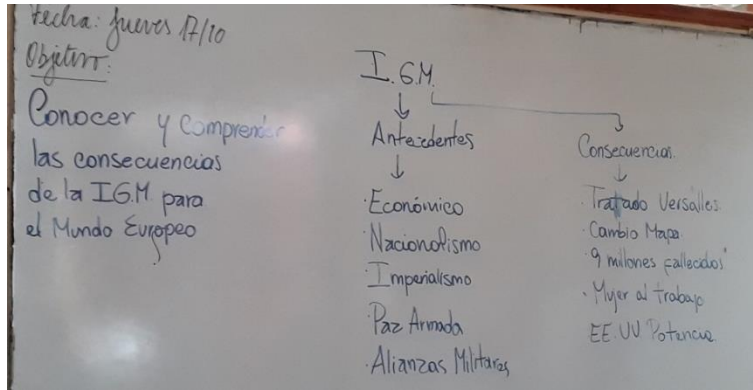 Fecha: Jueves 17/10
Objetivo:
Conocer y comprender
las consecuencias
de la I.G.M para
el Mundo Europeo
I.G.M.
Antecedentes
· Económico
· Nacionalismo
· Imperialismo
· Paz Armada
· Alianzas Militares
Consecuencias.
· Tratado Versalles.
· Cambio Mapa.
· 9 millones fallecidos"
· Mujer al trabajo
EE.UU Potencia.